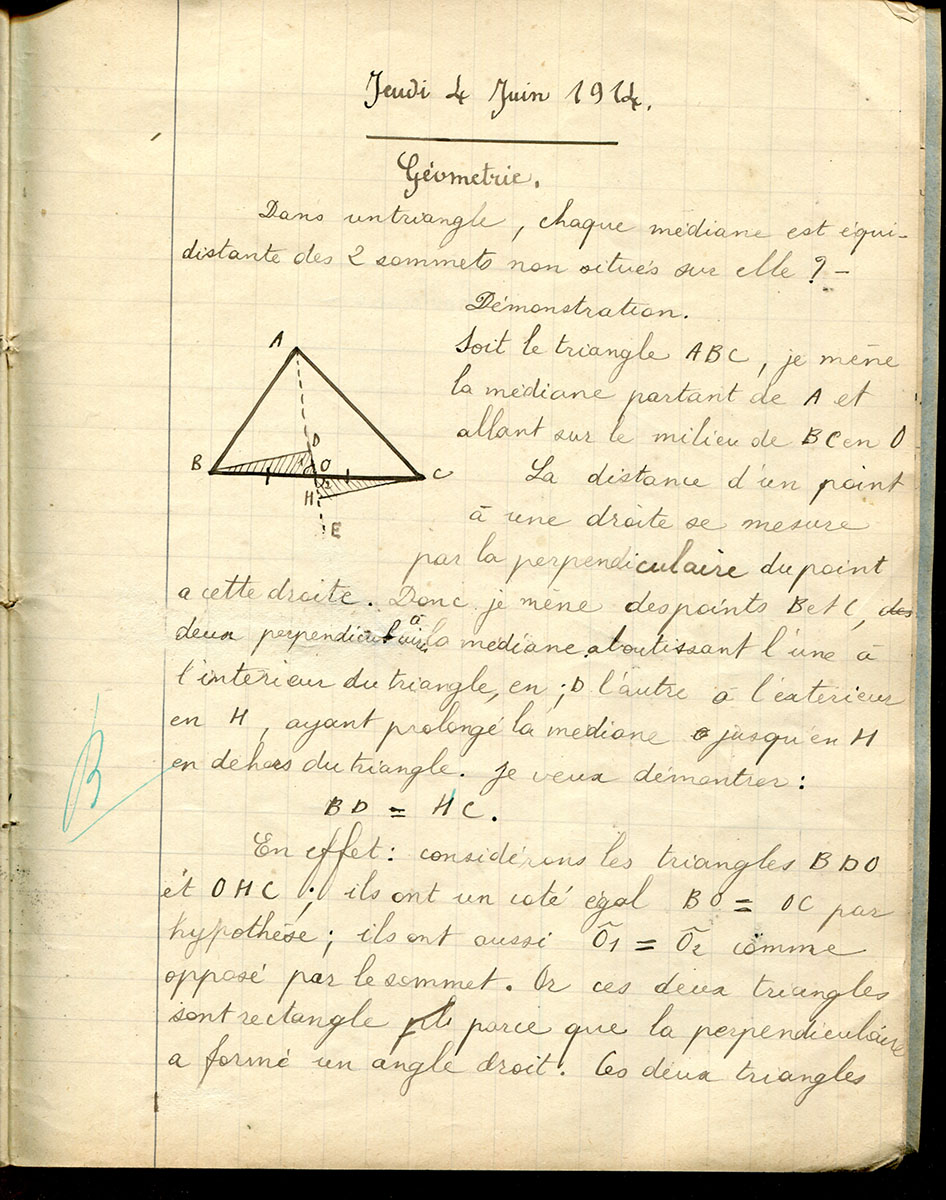 Jeudi 4 Juin 1914.
Géometrie.
Dans un triangle, chaque médiane est équi-
distante des 2 sommets non situés sur elle ? -
Démonstration.
Soit le triangle ABC, je mène
la mediane partant de A et
allant sur le milieu de BC en O
La distance d'un point
à une droite se mesure
par la perpendiculaire du point
a cette droite. Donc je mène des points B et C, des
deux à la mediane aboutissant l'une à
l'interieur du triangle, en ; D l'autre à l'exterieur
en H, ayant prolongé la mediane jusqu'en H
en dehors du triangle. Je veux démontrer :
BD = HC.
En effet : considérons les triangles BDO
et OHC ; ils ont un coté égal BO = OC par
hypothèse ; ils ont aussi Õ1 = Õ2 comme
opposé par le sommet. Or ces deux triangles
sont rectangle parce que la perpendiculaire
a formé un angle droit. Ces deux triangles
A
D
B
1
O
C
2
H
E
B